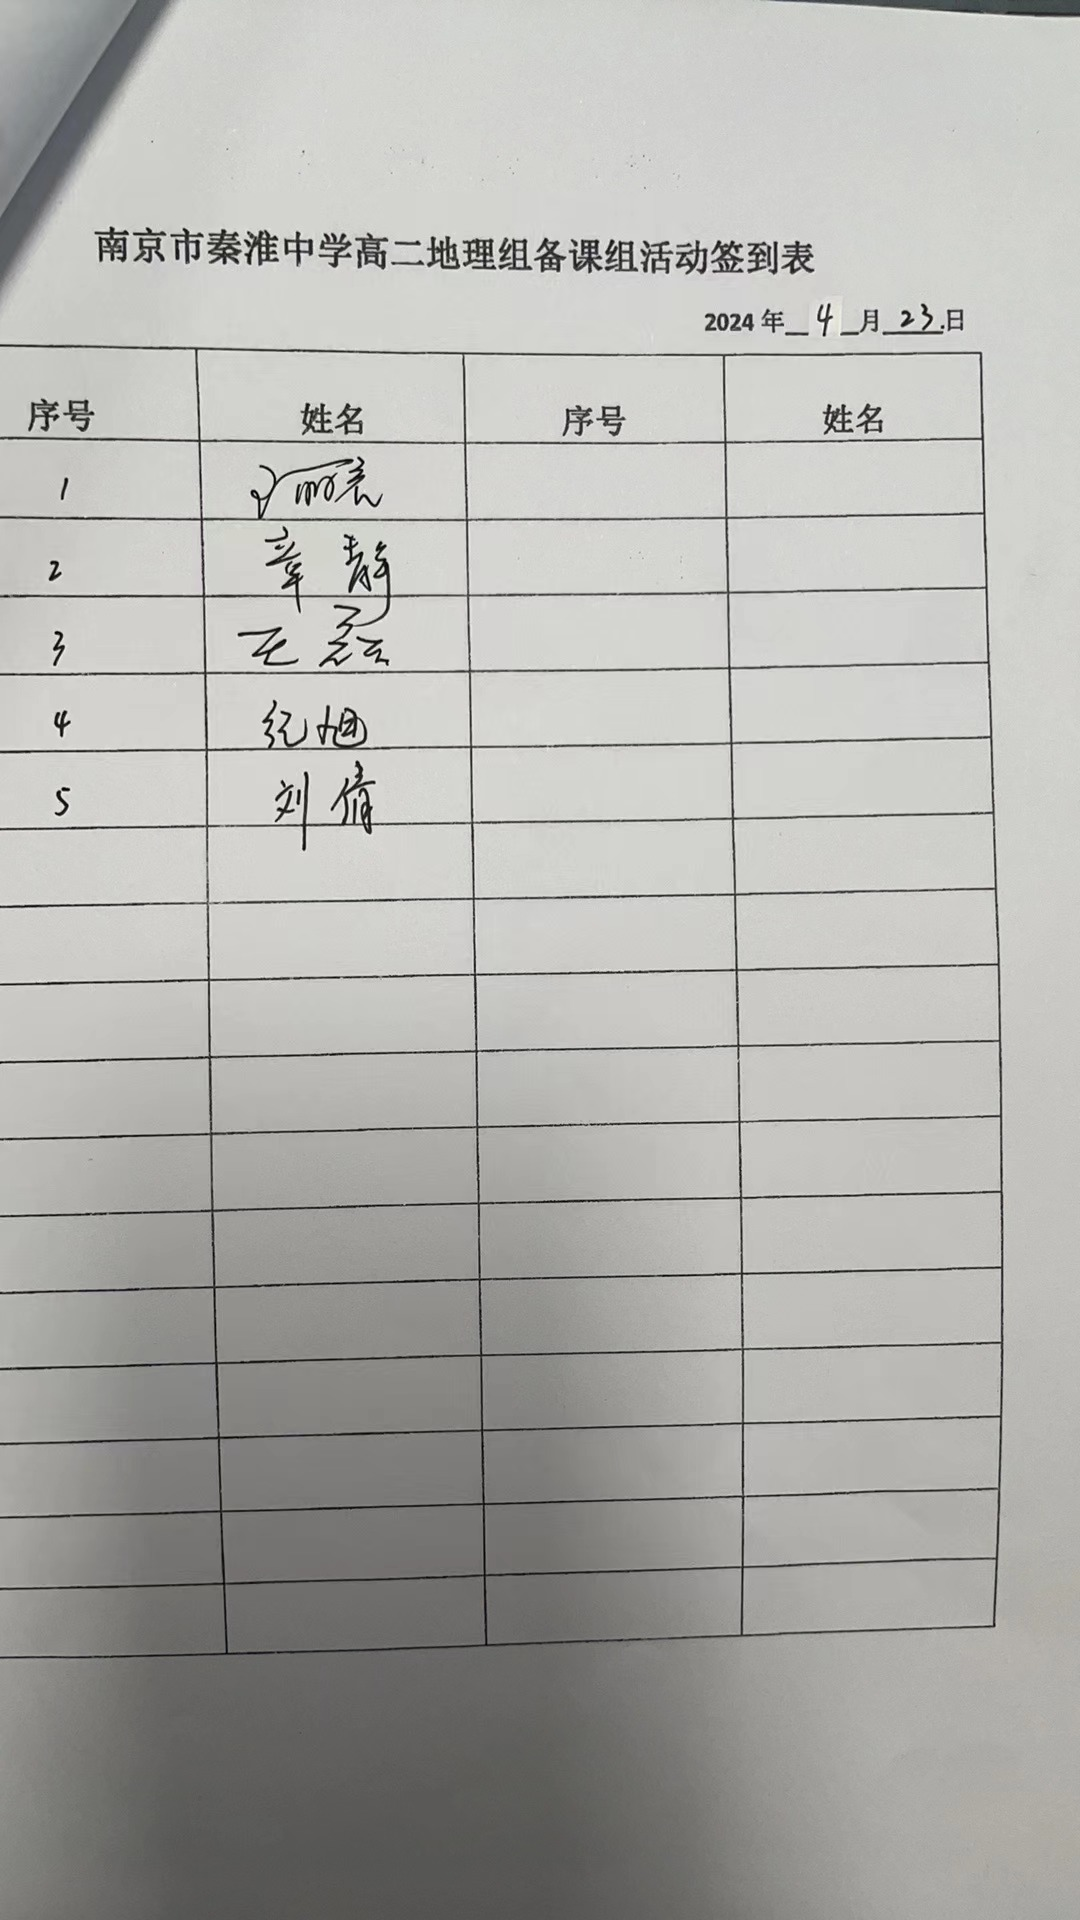 南京市秦淮中学高二地理组备课组活动签到表
2024年 4 月 23 日
序号 姓名 序号 姓名
1
2 章静
3 王磊
4 纪旭
5 刘倩